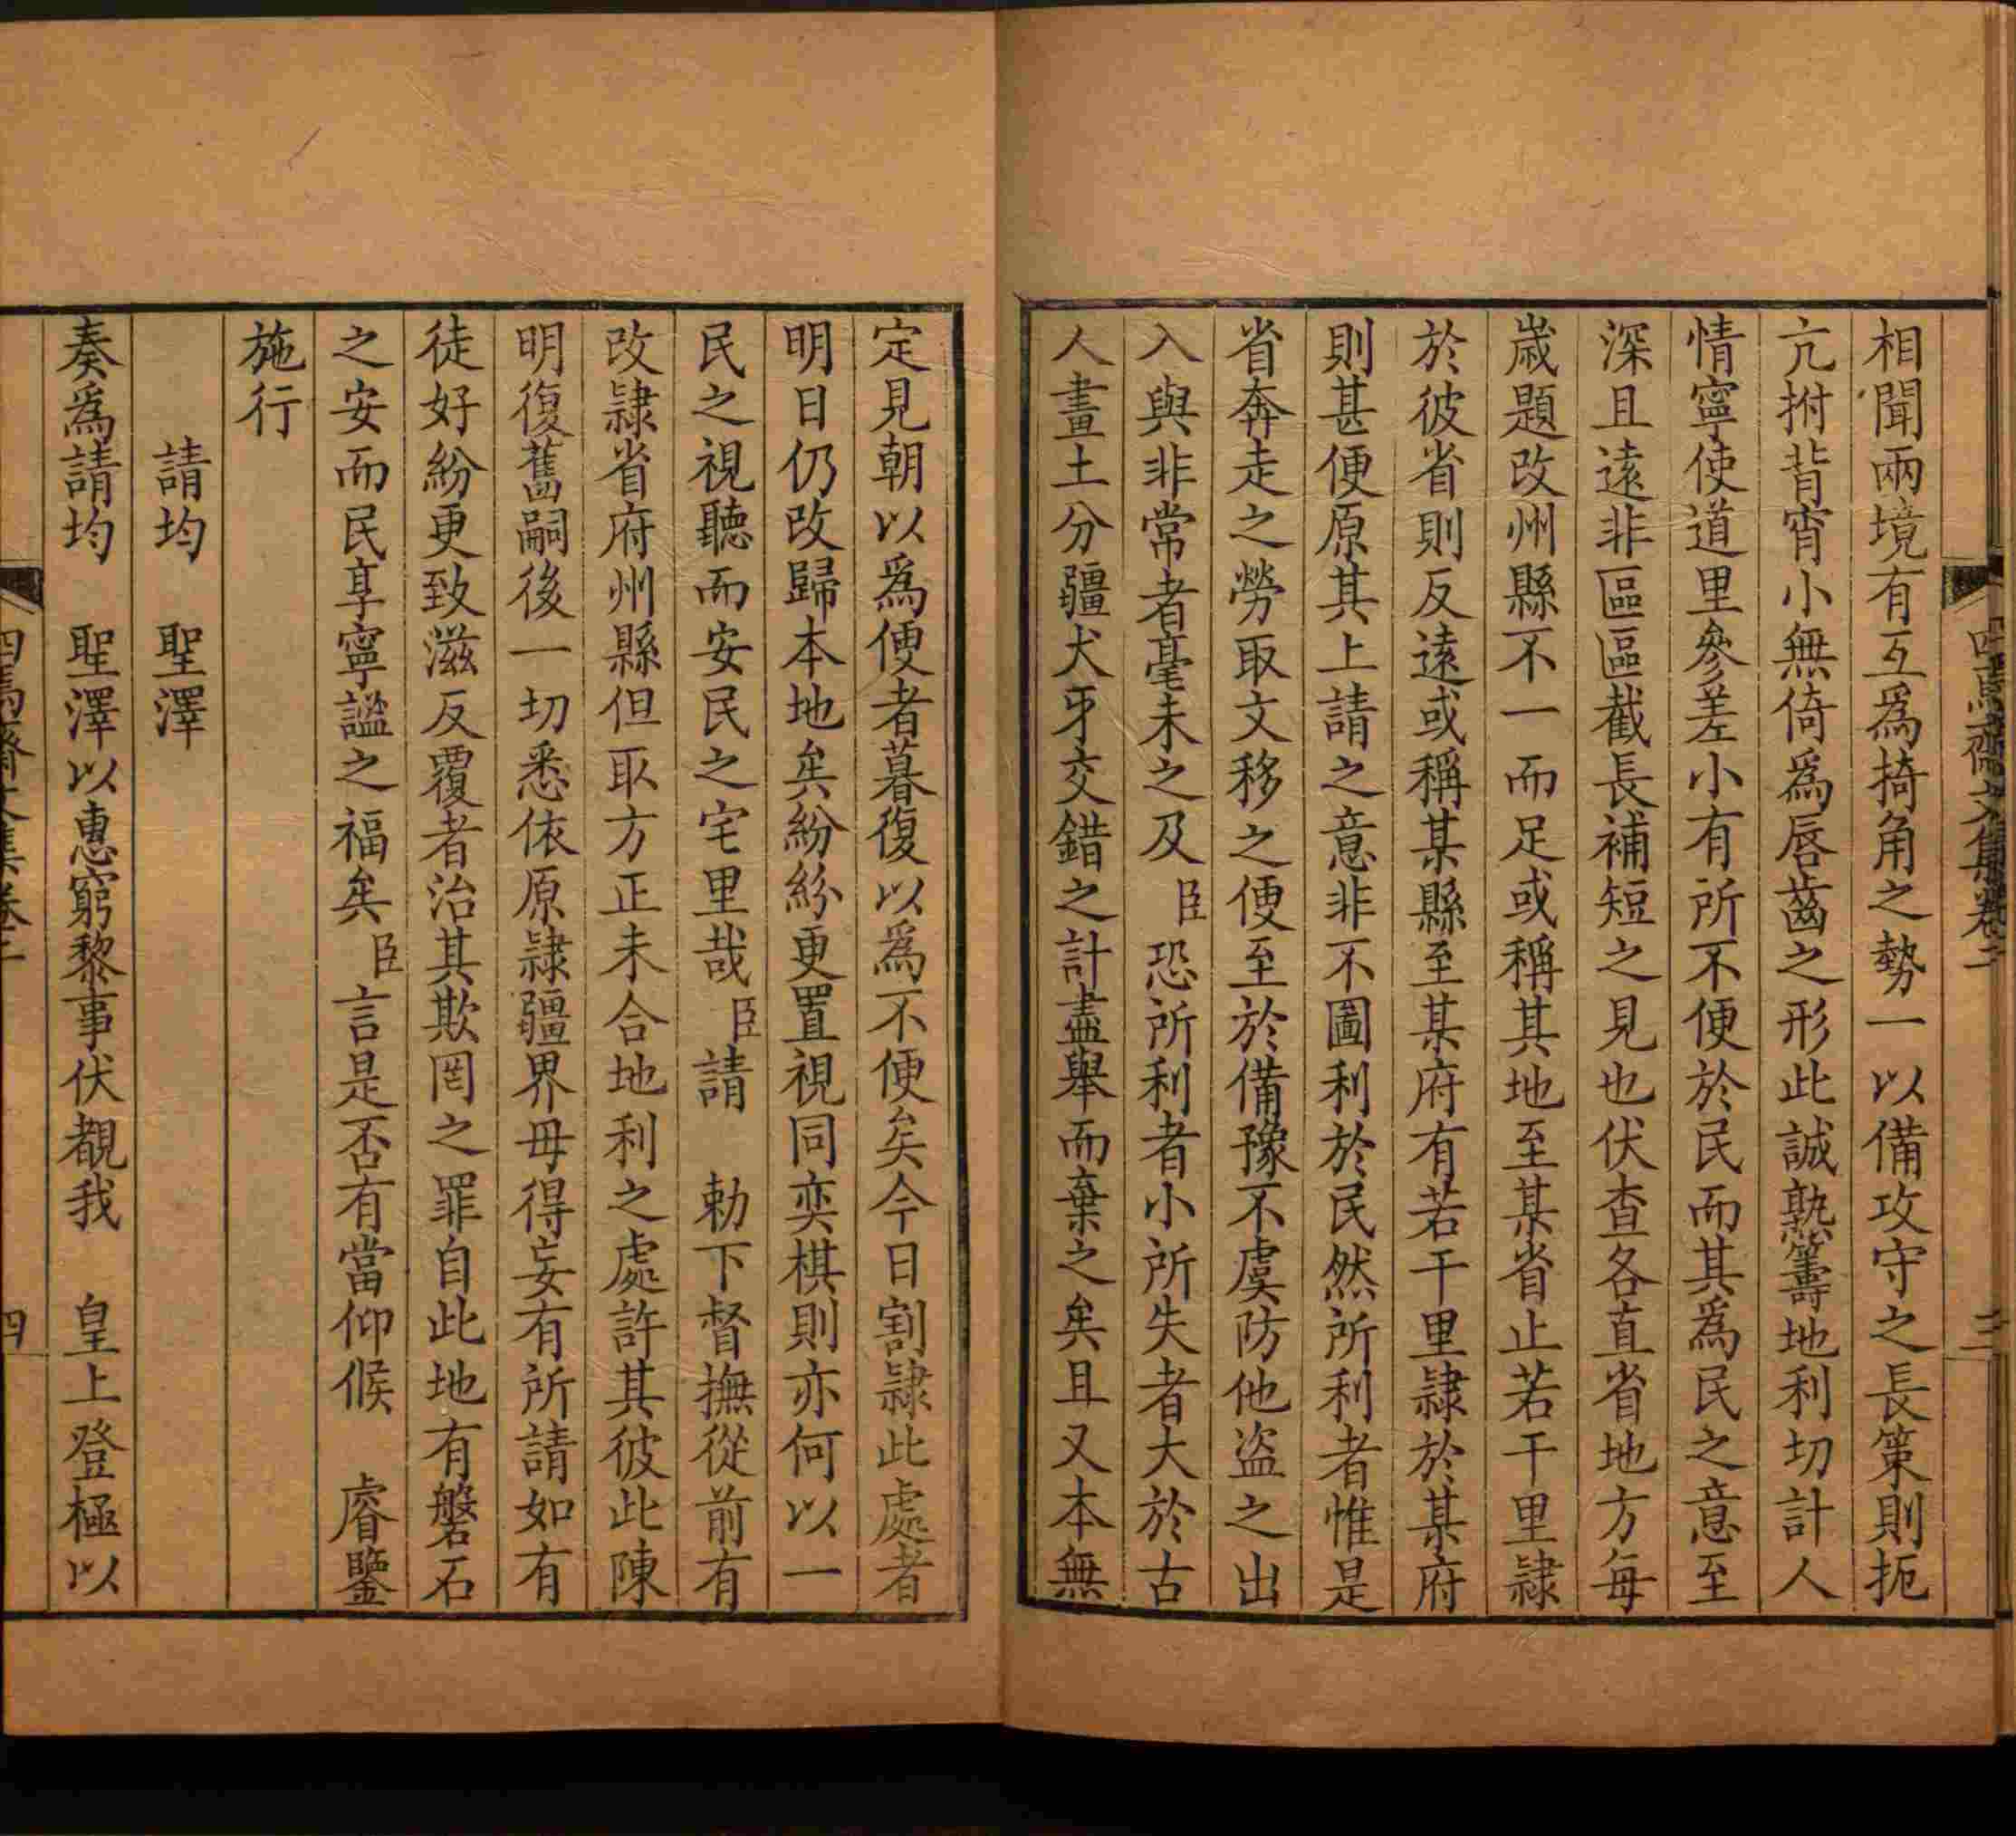 相聞兩境有互爲掎角之勢一以備攻守之長策則扼
亢拊背宵小無倚爲唇齒之形此誠熟籌地利切計人
情寧使道里參差小有所不便於民而其爲民之意至
深且遠非區區截長補短之見也伏查各直省地方每
歲題改州縣不一而足或稱其地至某省止若干里隷
於彼省則反遠或稱某縣至某府有若干里隷於某府
則甚便原其上請之意非不圖利於民然所利者惟是
省奔走之勞取文移之便至於備豫不虞防他盜之出
入與非常者毫未之及臣恐所利者小所失者大於古
人畫土分疆犬牙交錯之計盡舉而棄之矣且又本無
定見朝以爲便者暮復以爲不便矣今日割隷此處者
明日仍改歸本地矣紛紛更置視同奕棋則亦何以一
民之視聽而安民之宅里哉臣請 勅下督撫從前有
改隷省府州縣但取方正未合地利之處許其彼此陳
明復舊嗣後一切悉依原隷疆界毋得妄有所請如有
徒好紛更致滋反覆者治其欺罔之罪自此地有磐石
之安而民享寧謐之福矣臣言是否有當仰候 睿鑒
施行
請均 聖澤
奏爲請均 聖澤以惠窮黎事伏覩我 皇上登極以
四
三